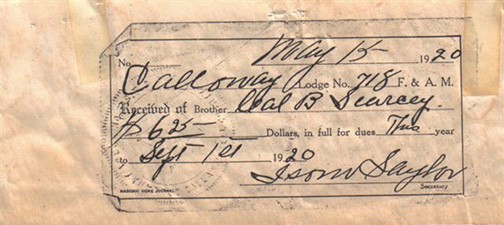 No. May 15 1920
Calloway Lodge No. 718 F. & A. M.
Received of Brother Neal B Searcey
$6 25 Dollars, in full for dues This year
to Sept 1st 1920
Isom Saylor
MASONIC HOME JOURNAL Secretary